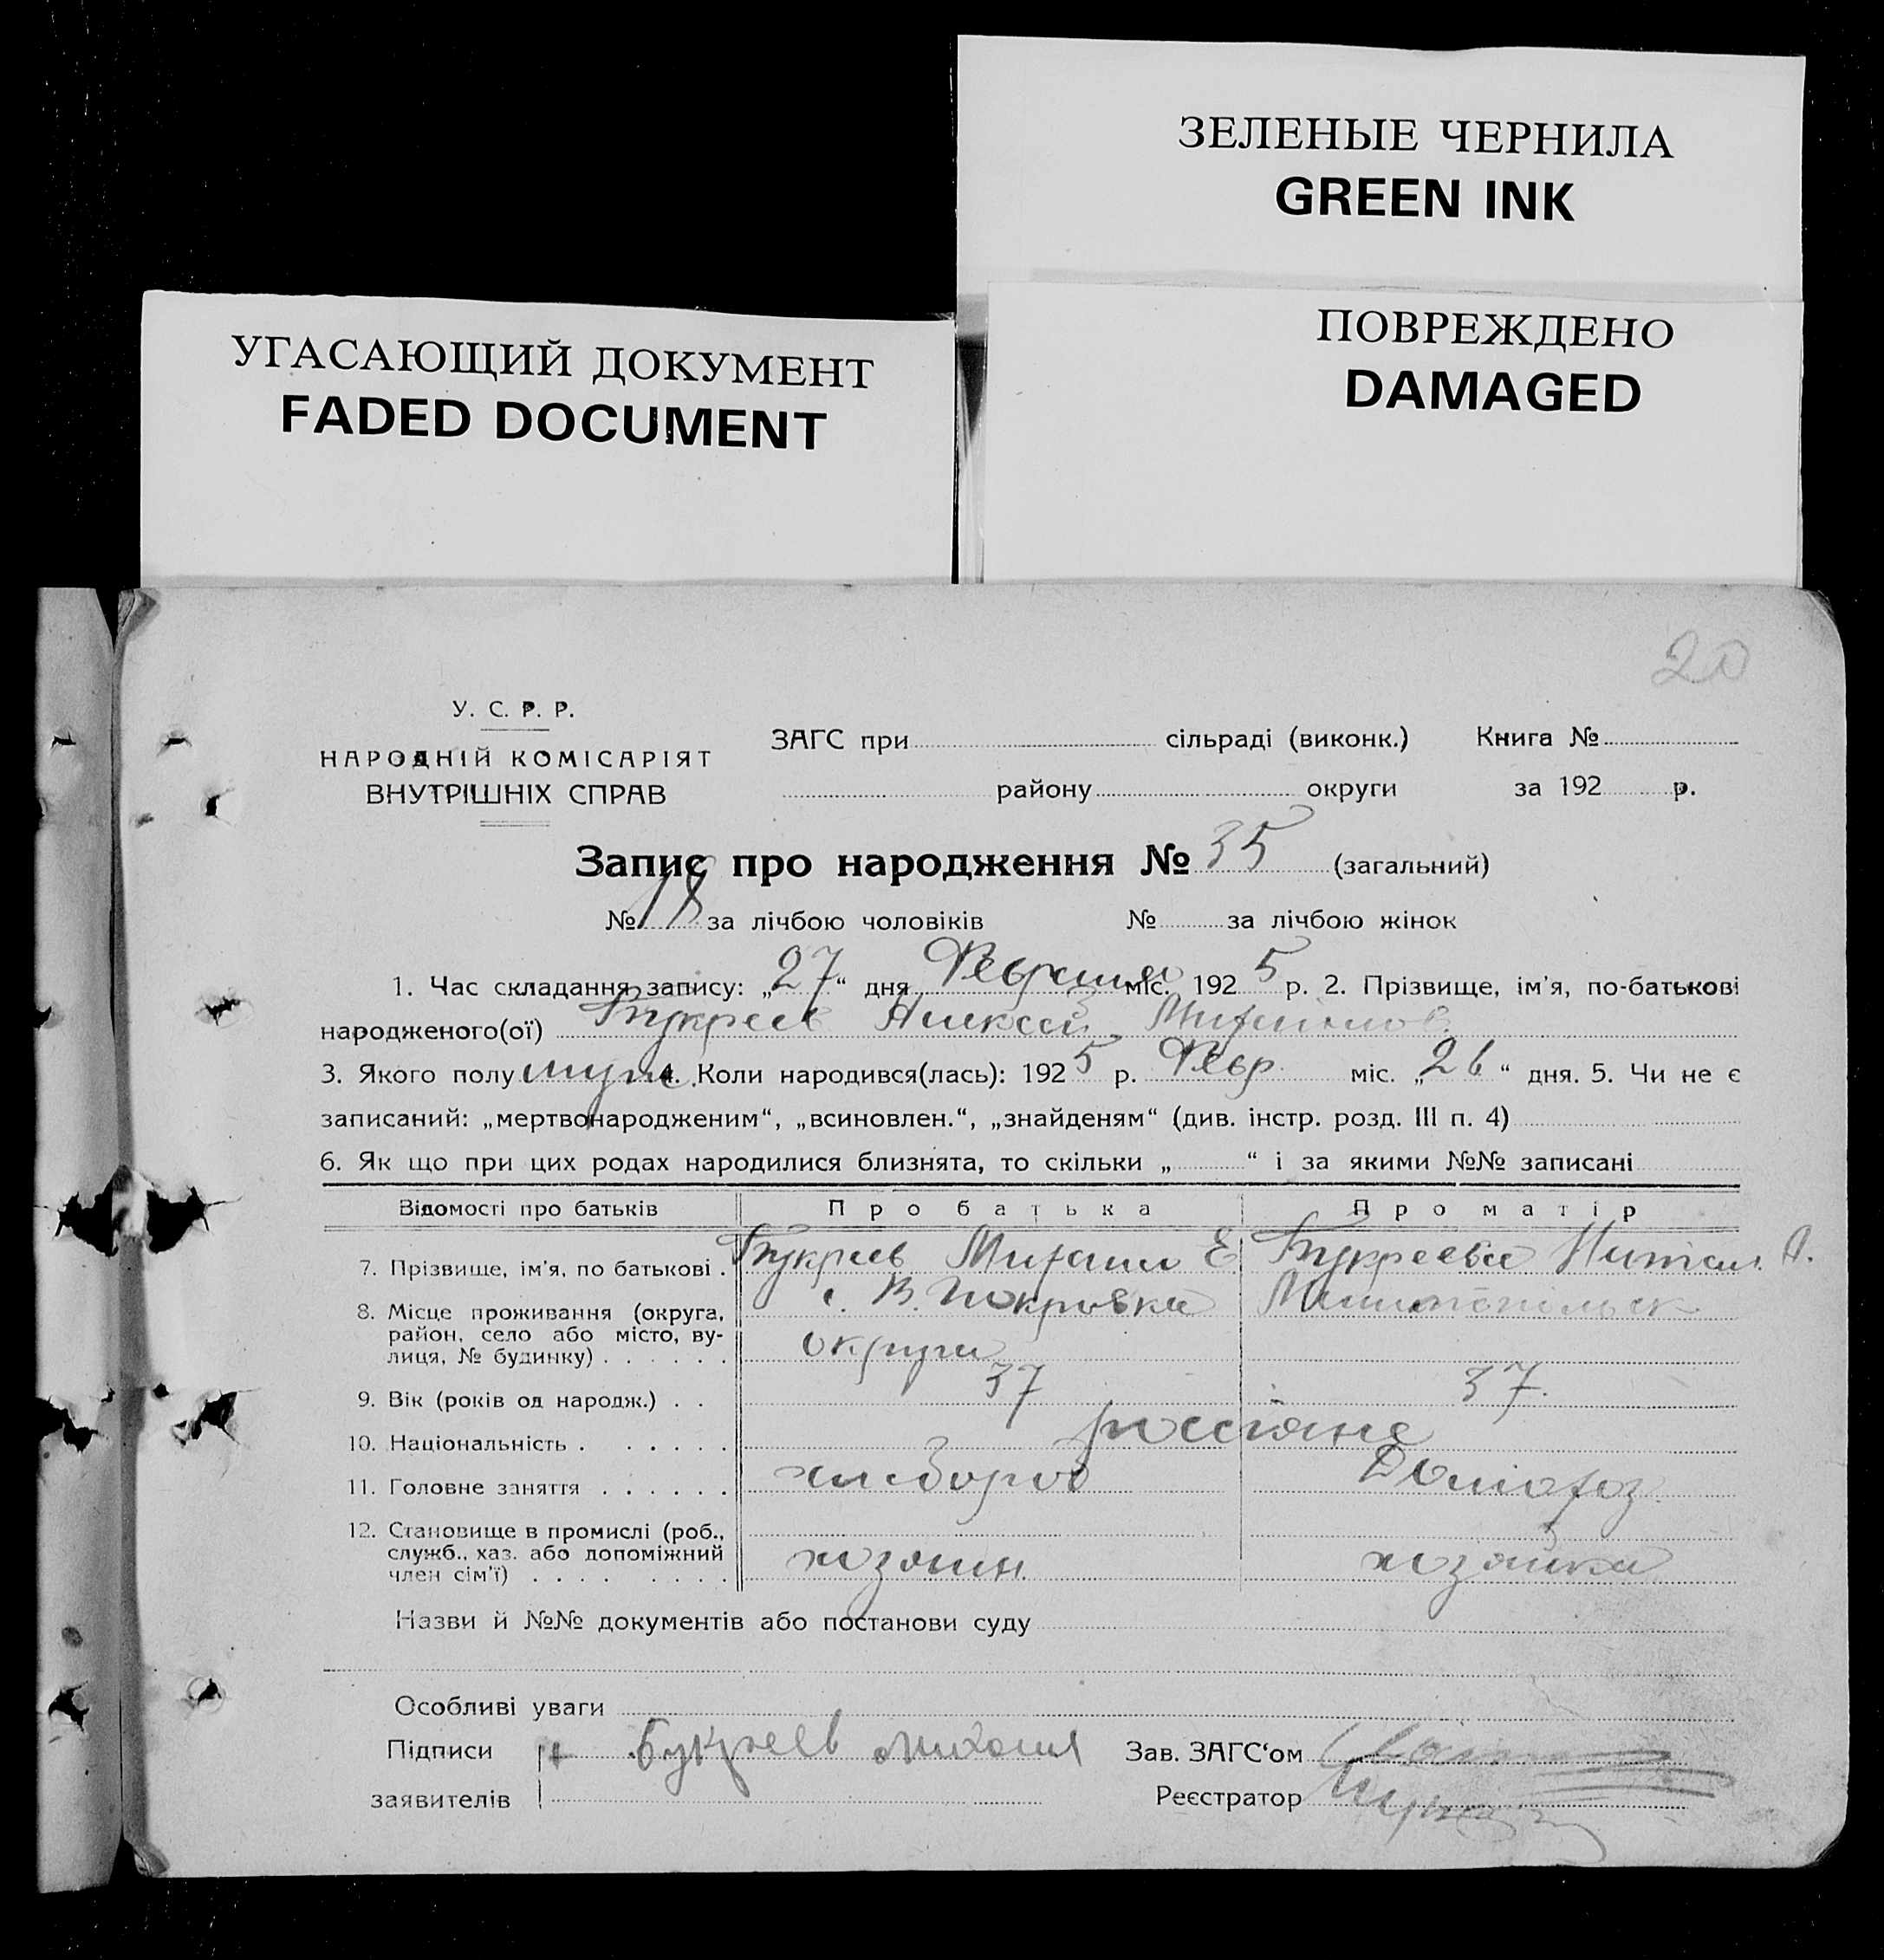 ЗЕЛЕНЫЕ ЧЕРНИЛА
GREEN INK
УГАСАЮЩИЙ ДОКУМЕНТ
FADED DOCUMENT
ПОВРЕЖДЕНО
DAMAGED
20
У. С. Р. Р.
НАРОДНІЙ КОМІСАРІЯТ
ВНУТРІШНІХ СПРАВ
ЗАГС при сільраді (виконк.) Книга №
району округи за 192 р.
Запис про народження № 35 (загальний)
№ 18 за лічбою чоловіків № за лічбою жінок
1. Час складання запису: „27“ дня Февраля міс. 1925 р. 2. Прізвище, ім'я, по-батькові
народженого(ої) Букреев Алексей Михайлов
3. Якого полу муж. 4. Коли народився(лась): 1925 р. Февр міс. „26“ дня. 5. Чи не є
записаний: „мертвонародженим“, „всиновлен.“, „знайденям“ (див. інстр. розд. III п. 4)
6. Як що при цих родах народилися близнята, то скільки „ “ і за якими №№ записані
Відомості про батьків Про батька Про матір
7. Прізвище, ім'я, по батькові . Букреев Михаил Е. Букреева Натал. А.
8. Місце проживання (округа, район, село або місто, вулиця, № будинку) с. В. Покровка
округи
9. Вік (років од народж.) . . 37 37.
10. Національність . россіяне
11. Головне заняття хлебороб Домохоз.
12. Становище в промислі (роб., служб., хаз. або допоміжний член сім'ї) хозяин. хозяйка
Назви й №№ документів або постанови суду
Особливі уваги
Підписи Букреев михаил Зав. ЗАГС‘ом
заявителів Реєстратор